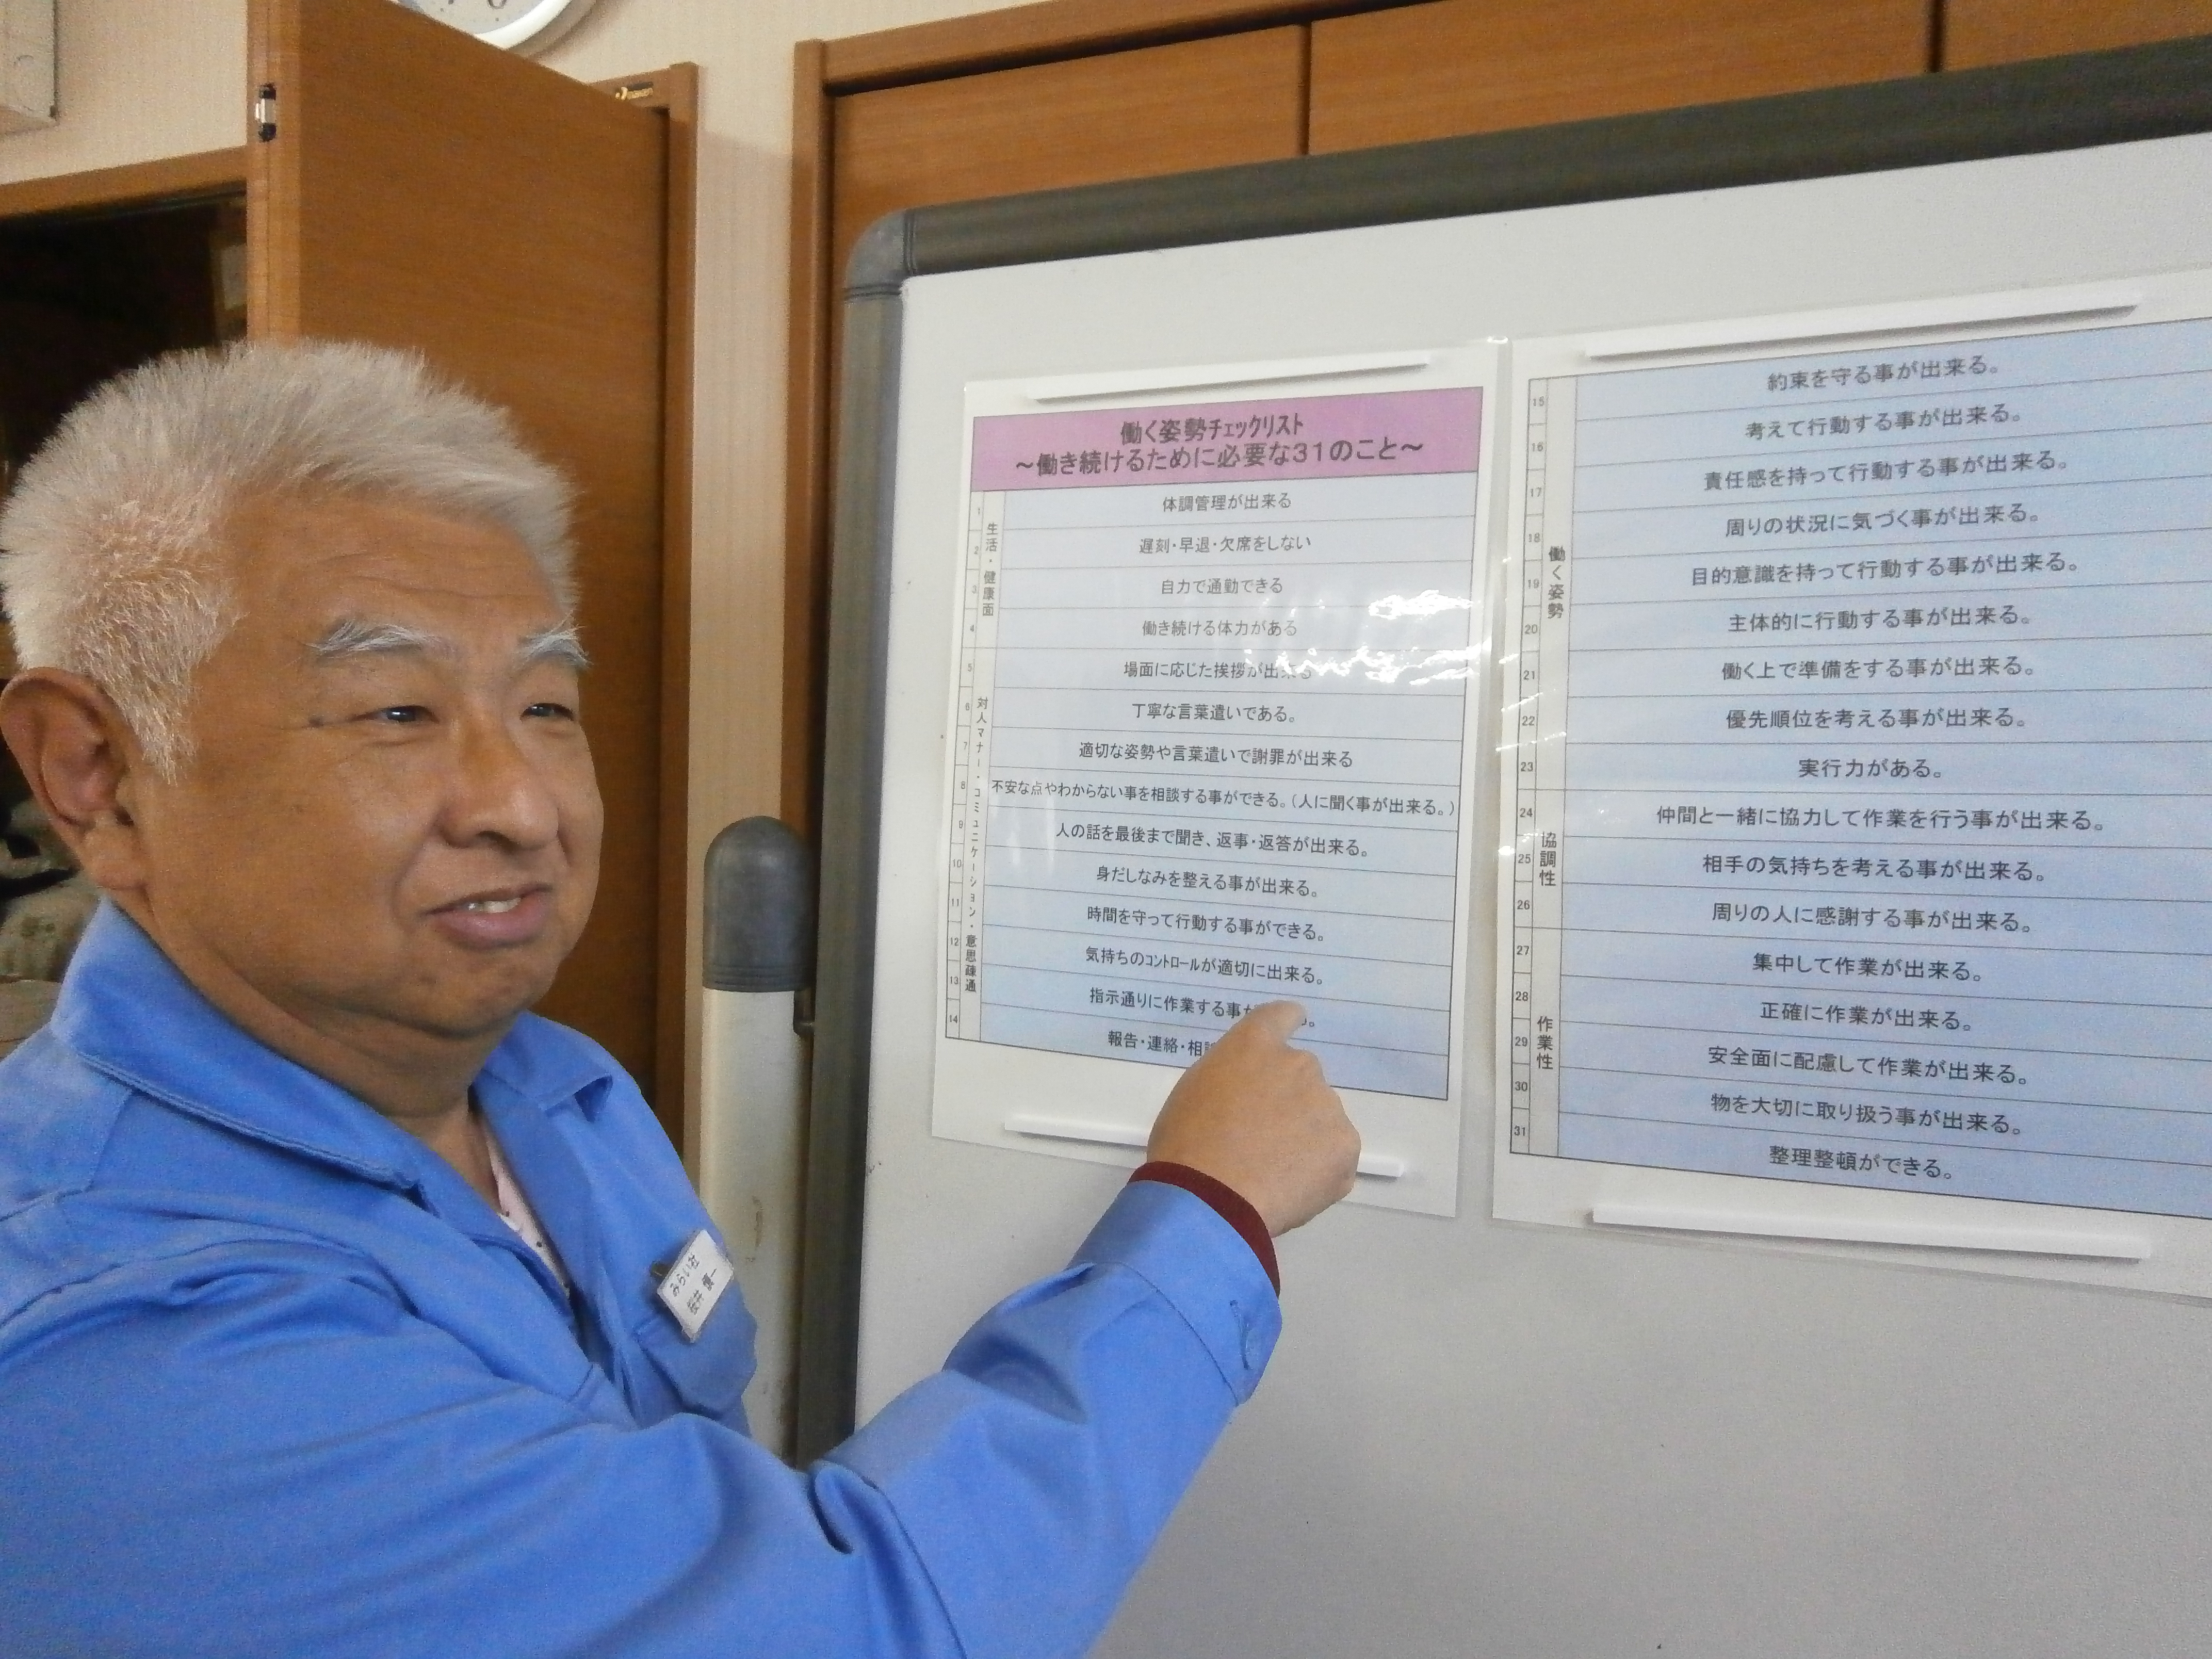 働く姿勢チェックリスト
～働き続けるために必要な31のこと～
生活・健康面
1 体調管理が出来る
2 遅刻・早退・欠席をしない
3 自力で通勤できる
4 働き続ける体力がある
対人マナー・コミュニケーション・意思疎通
5 場面に応じた挨拶が出来る
6 丁寧な言葉遣いである。
7 適切な姿勢や言葉遣いで謝罪が出来る
8 不安な点やわからない事を相談する事ができる。(人に聞く事が出来る。)
9 人の話を最後まで聞き、返事・返答が出来る。
10 身だしなみを整える事が出来る。
11 時間を守って行動する事ができる。
12 気持ちのコントロールが適切に出来る。
13 指示通りに作業する事が る。
14 報告・連絡・相
働く姿勢
15 約束を守る事が出来る。
16 考えて行動する事が出来る。
17 責任感を持って行動する事が出来る。
18 周りの状況に気づく事が出来る。
19 目的意識を持って行動する事が出来る。
20 主体的に行動する事が出来る。
21 働く上で準備をする事が出来る。
22 優先順位を考える事が出来る。
23 実行力がある。
協調性
24 仲間と一緒に協力して作業を行う事が出来る。
25 相手の気持ちを考える事が出来る。
26 周りの人に感謝する事が出来る。
作業性
27 集中して作業が出来る。
28 正確に作業が出来る。
29 安全面に配慮して作業が出来る。
30 物を大切に取り扱う事が出来る。
31 整理整頓ができる。
みらい社
桜井